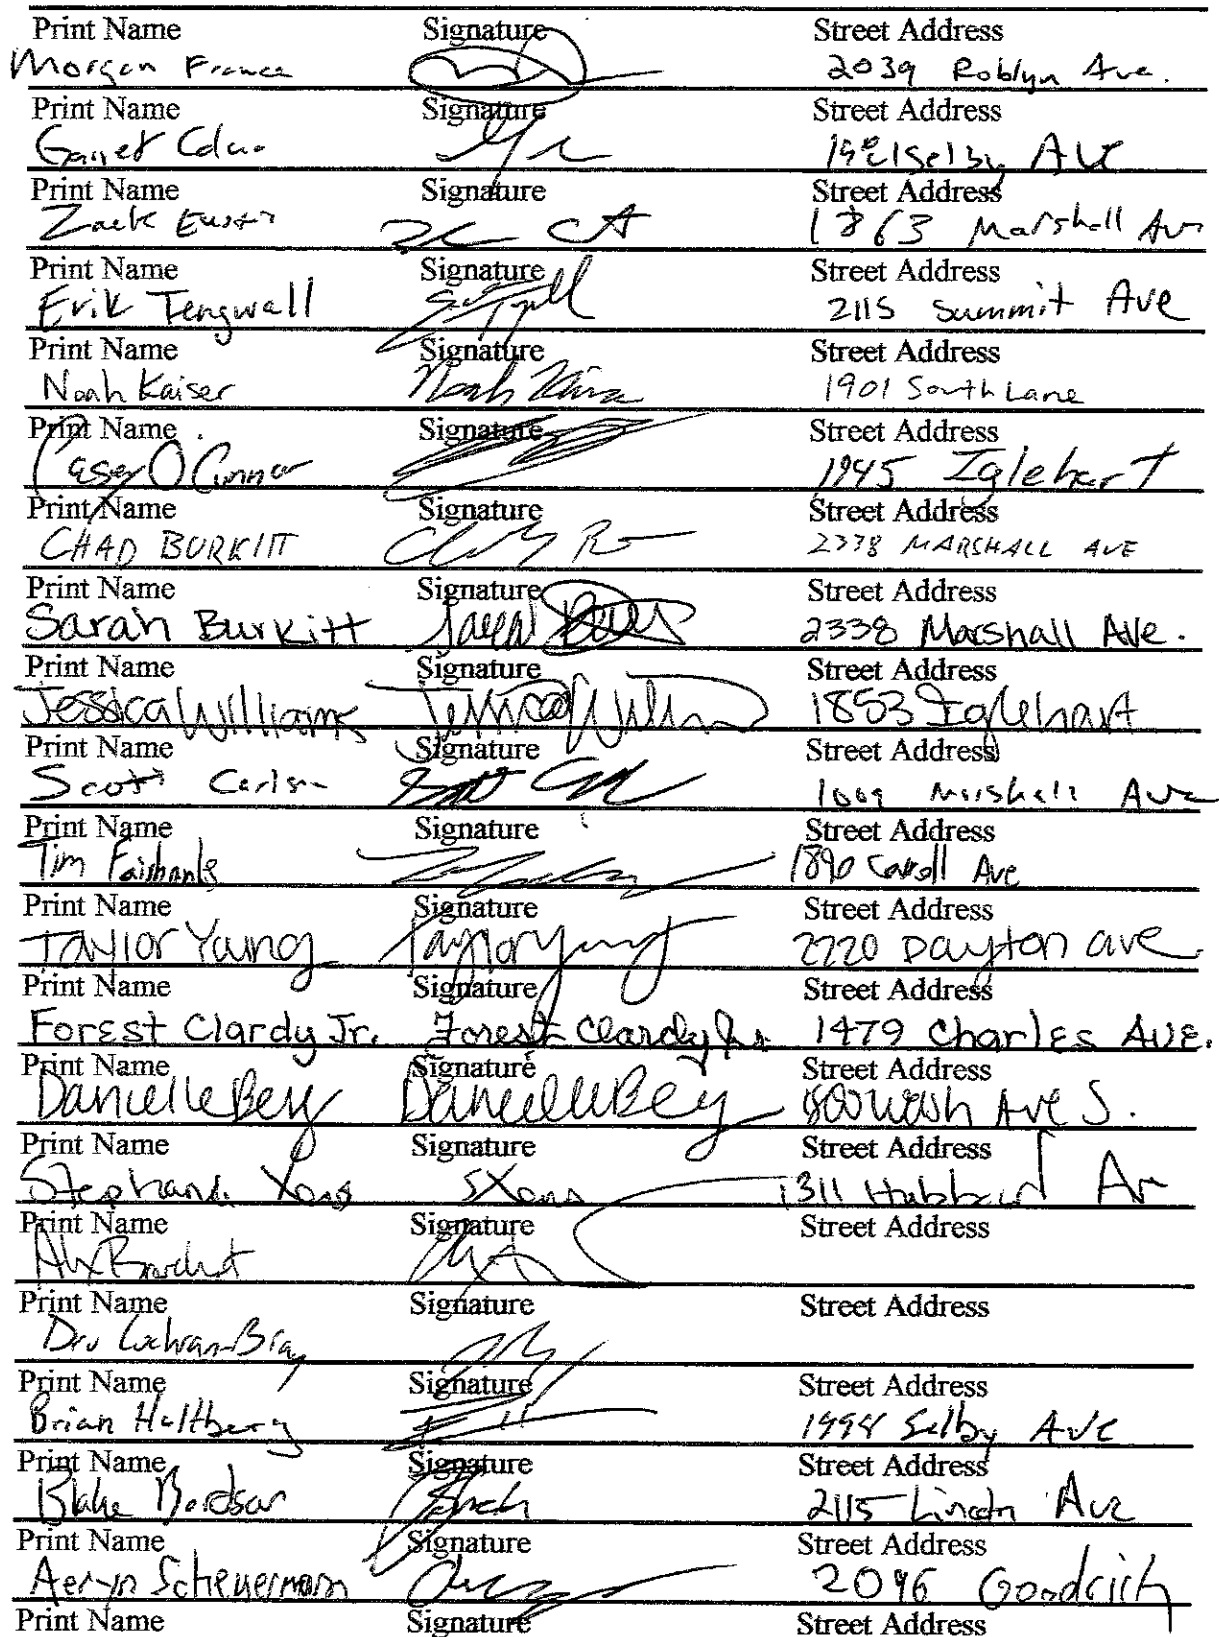 Print Name Signature Street Address
Morgan France 2039 Roblyn Ave.
Print Name Signature Street Address
Garret Selby Ave
Print Name Signature Street Address
Zack 1863 Marshall Ave
Print Name Signature Street Address
Erik Tengwall 2115 Summit Ave
Print Name Signature Street Address
Noah Kaiser Noah 1901 South Lane
Print Name Signature Street Address
Casey O Connor 1945 Iglehart
Print Name Signature Street Address
CHAD BURKITT 2338 MARSHALL AVE
Print Name Signature Street Address
Sarah Burkitt Sarah 2338 Marshall Ave.
Print Name Signature Street Address
Jessica Williams Jessica 1853 Iglehart
Print Name Signature Street Address
Scott Carlson Marshall Ave
Print Name Signature Street Address
Tim Fairbanks 1890 Carroll Ave
Print Name Signature Street Address
Taylor Young Taylor Young 2220 Dayton ave.
Print Name Signature Street Address
Forest Clardy Jr. Forest Clardy Jr. 1479 Charles AVE.
Print Name Signature Street Address
Danielle Bey Danielle Bey Wash Ave S.
Print Name Signature Street Address
Xong SXong 1311 Hubbard Av
Print Name Signature Street Address
Alx
Print Name Signature Street Address
Cochran-Bray
Print Name Signature Street Address
Brian Hultberg 1998 Selby Ave
Print Name Signature Street Address
Blake Bordson 2115 Lincoln Ave
Print Name Signature Street Address
Aeryn Scheuermann 2096 Goodrich
Print Name Signature Street Address